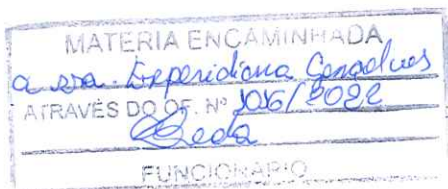 MATERIA ENCAMINHADA
a sra. Experidiana Gonçalves
ATRAVÉS DO OF. Nº 1016/2022
Leda
FUNCIONÁRIO